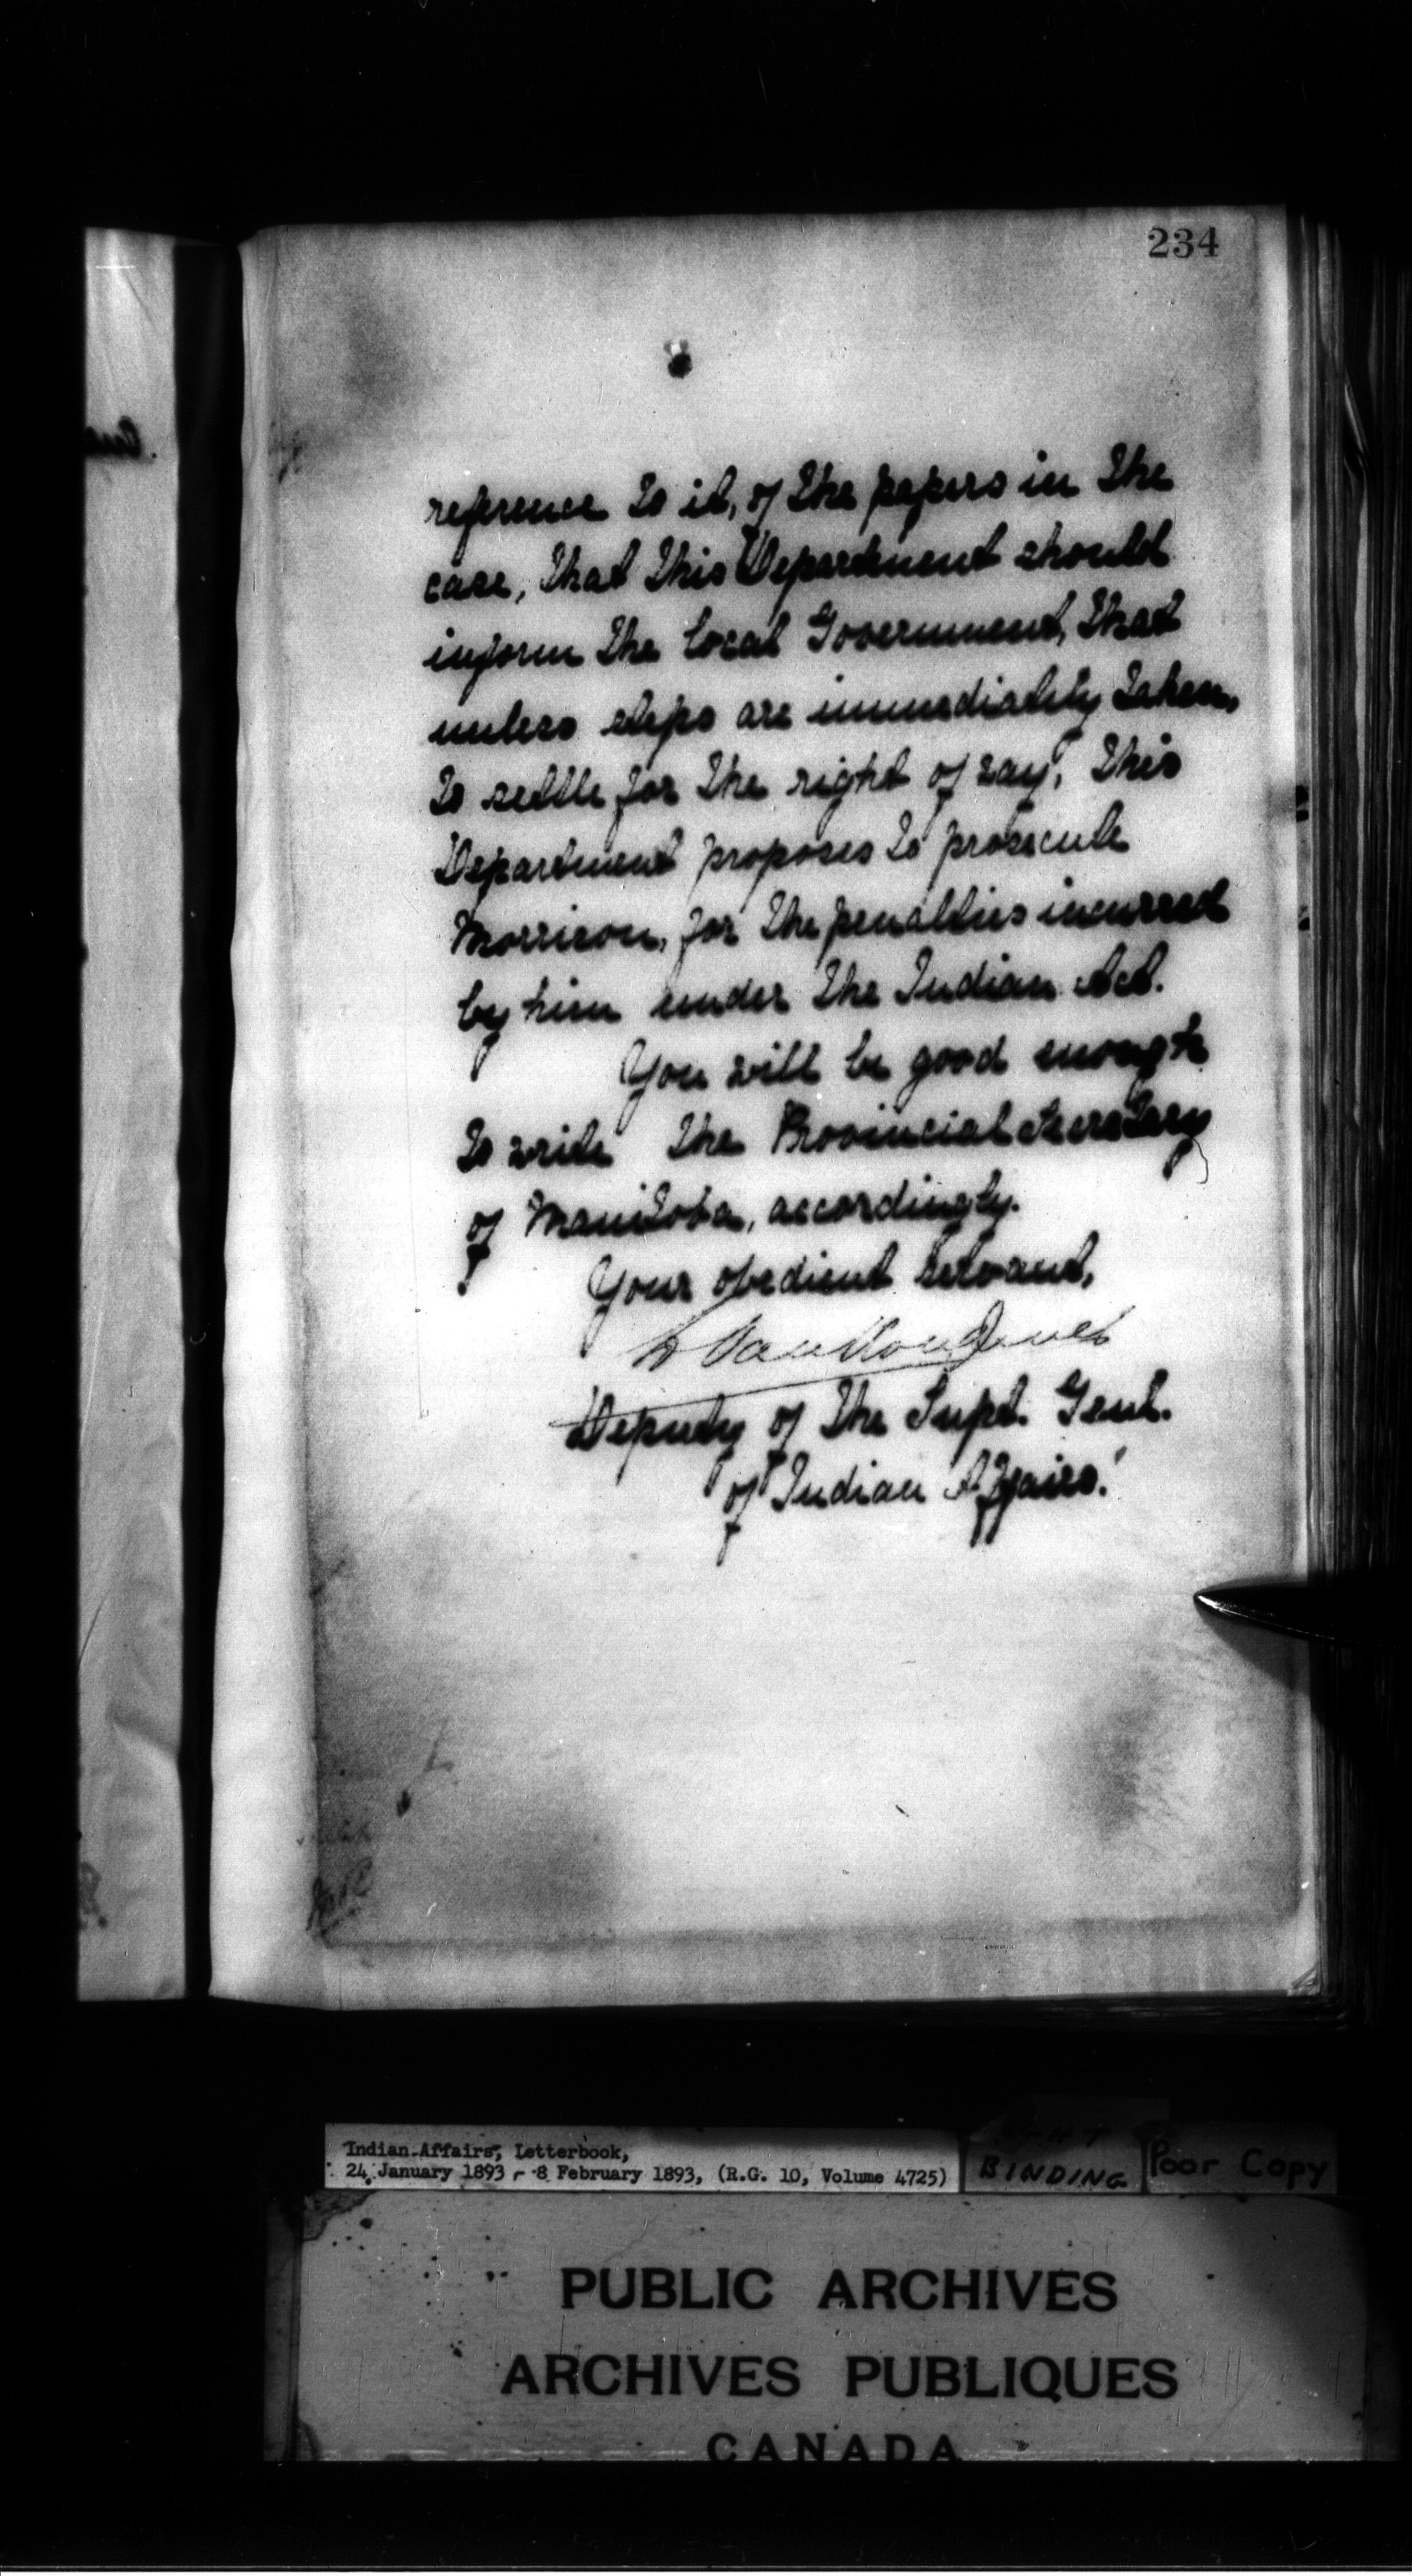 234
reference to it, of the papers in the
case, that this Department should
inform the Local Government, that
unless steps are immediately taken,
to settle for the right of way, this
Department proposes to prosecute
Morrison, for the penalties incurred
by him under the Indian Act.
You will be good enough
to write the Provincial Secretary
of Manitoba, accordingly.
Your obedient servant,
L Vankoughnet
Deputy of the Supt. Genl.
of Indian Affairs.
Indian Affairs, Letterbook,
24 January 1893 - 8 February 1893, (R.G. 10, Volume 4725)
BINDING
Poor Copy
PUBLIC ARCHIVES
ARCHIVES PUBLIQUES
CANADA